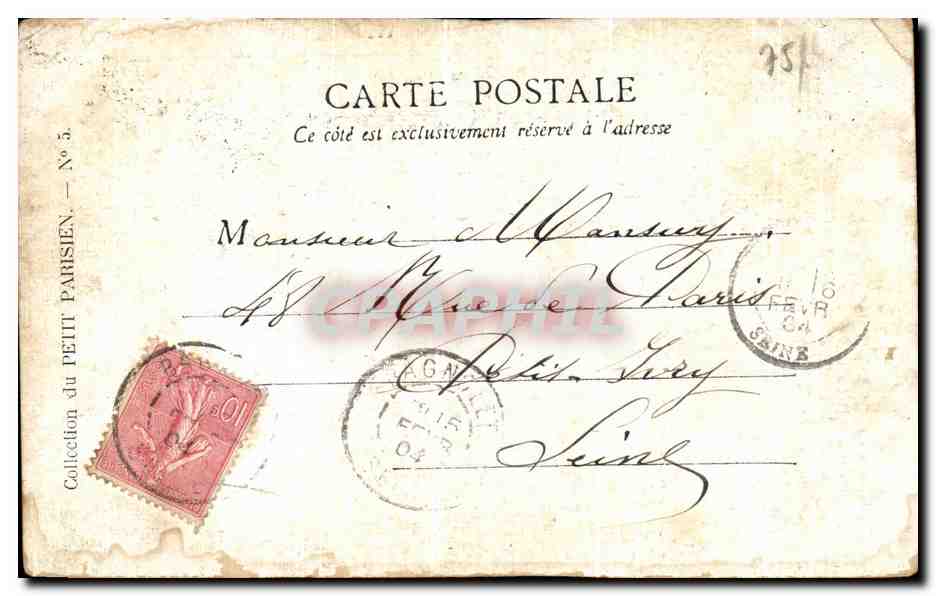 75
CARTE POSTALE
Ce côté est exclusivement réservé à l'adresse
Collection du PETIT PARISIEN. — Nº 5.
Monsieur Mansuy,
48 Rue de Paris
Petit-Ivry
Seine
CPAPHIL
10
04
BAGNOLET
15
FEVR
04
16
FEVR
04
SEINE